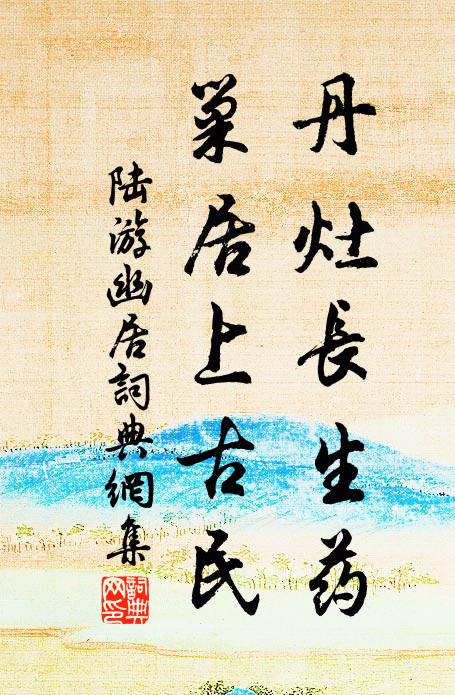 丹灶長生药
巢居上古民
陆游幽居詞典網集
詞典网印